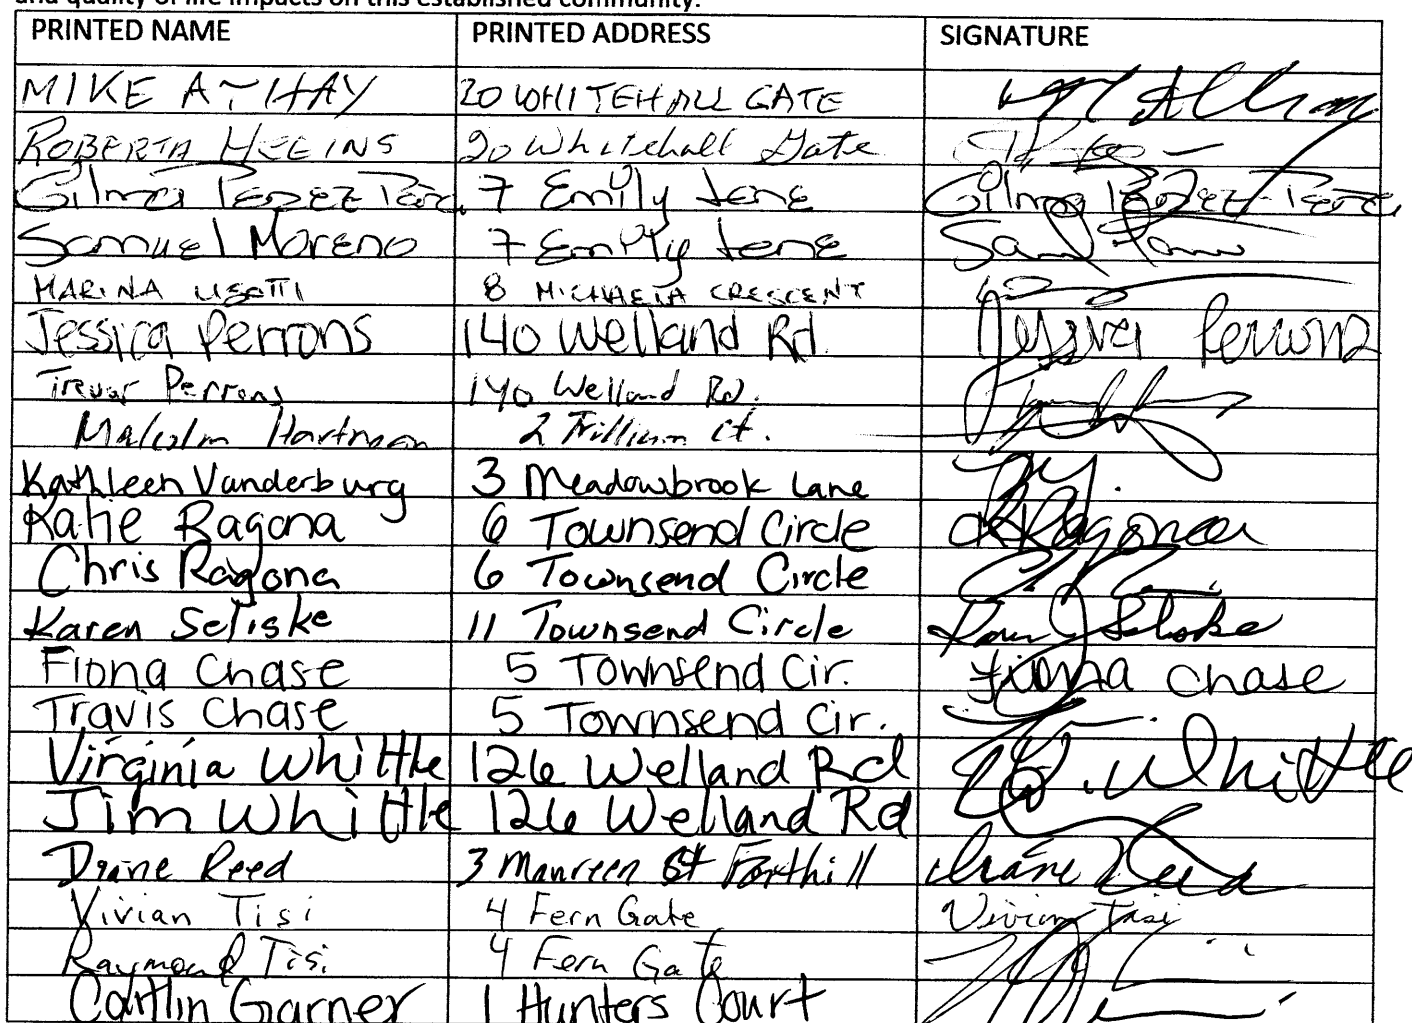 and quality of life impacts on this established community.
PRINTED NAME PRINTED ADDRESS SIGNATURE
MIKE ATHAY 20 WHITEHALL GATE
ROBERTA 20 Whitehall Gate
Gilma Perez 7 Emily Lane Gilma Perez
Samuel Moreno 7 Emily Lane
MARINA 8 MICHAELA CRESCENT
Jessica Perrons 140 Welland Rd. Jessica Perrons
Trevor Perrons 140 Welland Rd.
Malcolm Hartman 2 Trillium Ct.
Kathleen Vanderburg 3 Meadowbrook Lane
Katie Ragona 6 Townsend Circle KRagona
Chris Ragona 6 Townsend Circle
Karen Seliske 11 Townsend Circle Karen Seliske
Fiona Chase 5 Townsend Cir. Fiona Chase
Travis Chase 5 Townsend Cir.
Virginia Whittle 126 Welland Rd Whittle
Jim Whittle 126 Welland Rd
Diane Reed 3 Maureen Fonthill Diane Reed
Vivian Tisi 4 Fern Gate Vivian Tisi
Raymond Tisi 4 Fern Gate
Caitlin Garner 1 Hunters Court